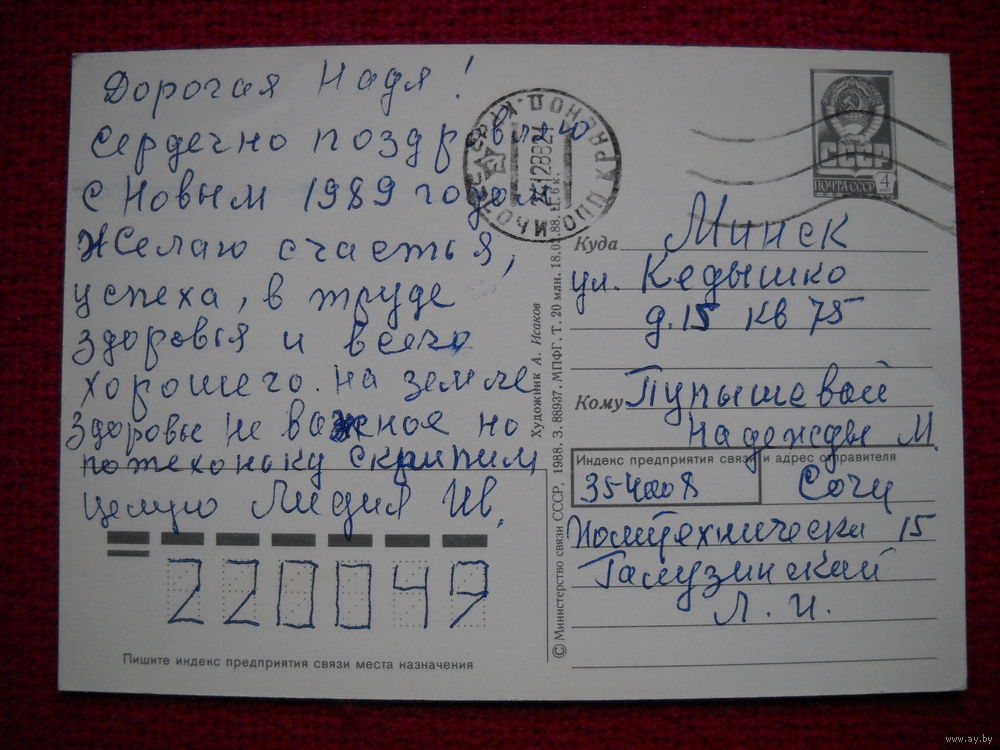 Дорогая Надя!
Сердечно поздравляю
с Новым 1989 годом
Желаю счастья,
успеха, в труде
здоровья и всего
хорошего. на земле
Здоровье не важное но
потехоньку скрипим
целую Лидия Ив.
220049
Пишите индекс предприятия связи места назначения
© Министерство связи СССР, 1988. З. 88937. МПФГ. Т. 20 млн. 18.0 .88. Ц. 6 к.
Художник А. Исаков
СОЧИ
СССР
ПОЧТА СССР 4
Куда Минск
ул. Кедышко
д. 15 кв 75
Кому Пупышевой
Надежды М
Индекс предприятия связи и адрес отправителя
354008 Сочи
15
Галузинский
Л. И.
www.ay.by